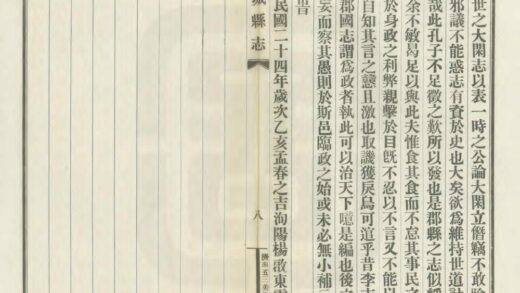 世之大閑志以表一時之公論大閑立僭竊不敢
邪議不能惑志有賚於史也大矣欲爲維持世道
哉此孔子不足徵之歎所以發也是郡縣之志似
余不敏曷足以與此夫惟食其食而不怠其事民之
於身政之利弊親擊於目旣不忍以不言又不能以
自知其言之戇且激也取譏獲戾烏可逭乎昔李
郡國志謂爲政者執此可以治天下噫是編也後
妄而察其愚則於斯邑臨政之始或未必無小補
民國二十四年歲次乙亥孟春之吉洵陽楊啟東
縣志
八